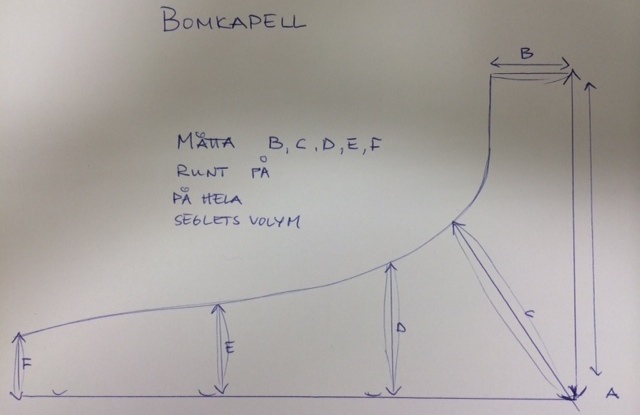 BOMKAPELL
B
MÄTTA B, C, D, E, F
RUNT PÅ
PÅ HELA
SEGLETS VOLYM
C
D
E
F
A